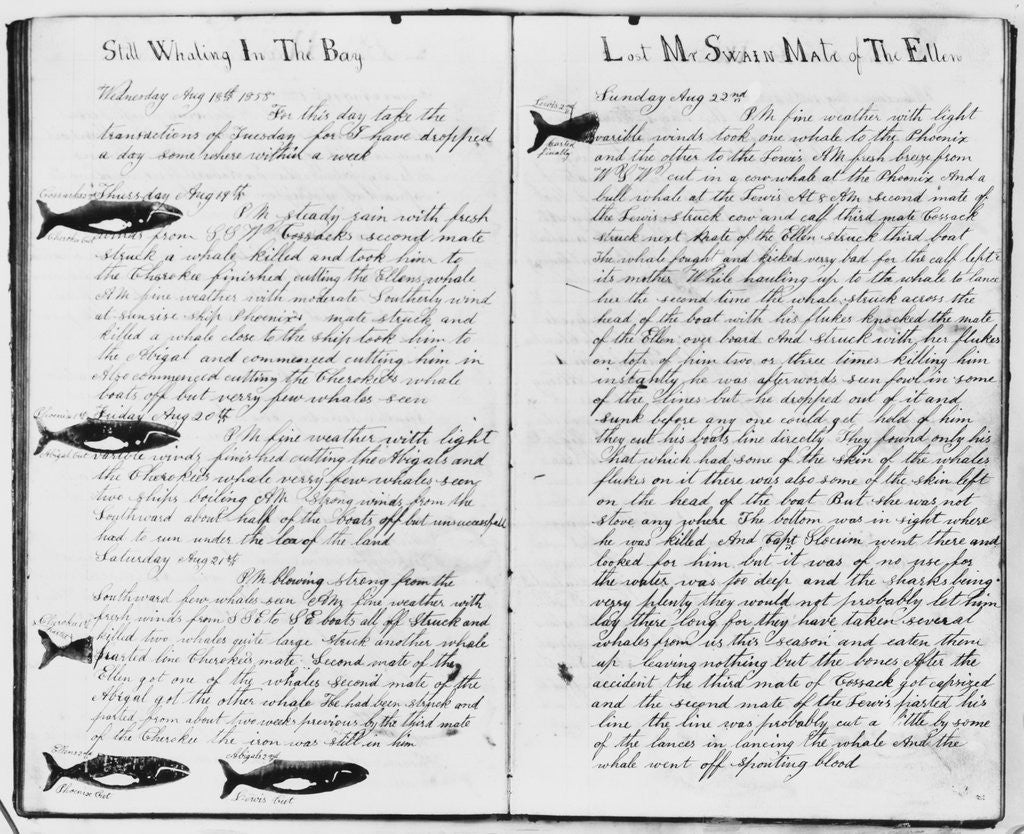 Still Whaling In The Bay
Wednesday Aug 18th 1858
For this day take the
transactions of Tuesday for I have dropped
a day some where within a week
Thursday Aug 19th
P.M. steady rain with fresh
winds from S.S.Wd Cossacks second mate
struck a whale killed and took him to
the Cherokee finished cutting the Ellens whale
A.M. fine weather with moderate Southerly wind
at sunrise ship Phoenix's mate struck and
killed a whale close to the ship took him to
the Abigal and commenced cutting him in
Also commenced cutting the Cherokees whale
boats off but verry few whales seen
Friday Aug 20th
P.M. fine weather with light
varible winds finished cutting the Abigals and
the Cherokees whale verry few whales seen
two ships boiling A.M. Strong winds from the
Southward about half of the boats off but unsuccessfull
had to run under the lea of the land
Saturday Aug 21st
P.M. blowing strong from the
Southward few whales seen A.M. fine weather with
fresh winds from S S E to S E boats all off Struck and
killed two whales quite large struck another whale
parted line Cherokees mate. Second mate of the
Ellen got one of the whales second mate of the
Abigal got the other whale He had been struck and
parted from about two weeks previous by the third mate
of the Cherokee the iron was still in him
Cossacks
Cherokee Cut
Phoenix
Abigal Cut
Cherokee
Ellens
Phoenix Cut
Abigals 2nd
Lewis Cut
Lost Mr Swain Mate of The Ellen
Sunday Aug 22nd
Lewis 2nd
finally
P.M. fine weather with light
varible winds took one whale to the Phoenix
and the other to the Lewis A.M. fresh breeze from
cut in a cow whale at the Phoenix And a
bull whale at the Lewis At 8 A.M. second mate of
the Lewis struck cow and calf third mate Cossack
struck next Mate of the Ellen struck third boat
The whale fought and kicked verry bad for the calf left
its mother While hauling up to the whale to lance
her the second time the whale struck across the
head of the boat with his flukes knocked the mate
of the Ellen over board And struck with her flukes
on top of him two or three times killing him
instantly he was afterwards seen fowl in some
of the lines but he dropped out of it and
sunk before any one could get hold of him
they cut his boats line directly They found only his
hat which had some of the skin of the whales
flukes on it there was also some of the skin left
on the head of the boat But she was not
stove any where The bottom was in sight where
he was killed And Capt Slocum went there and
looked for him but it was of no use for
the water was too deep and the sharks being
verry plenty they would not probably let him
lay there long for they have taken several
whales from us this season and eaten them
up leaving nothing but the bones After the
accident the third mate of Cossack got capsized
and the second mate of the Lewis parted his
line the line was probably cut a little by some
of the lances in lancing the whale And the
whale went off spouting blood